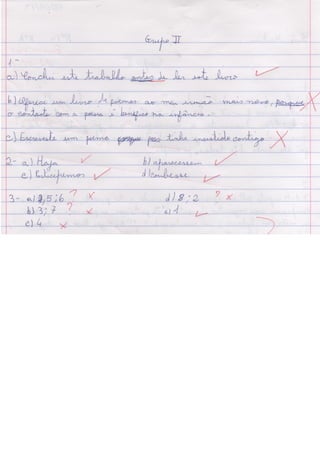 Grupo II
1-
a) Conclui este trabalho antes de ler este livro
b) Ofereci um livro de poemas ao meu irmão mais novo, porque
o contacto com a poesia é benéfico na infância.
c) Escreveste um poema pois tinha insistido contigo
2- a) Haja b) aparecessem
c) Estivéssemos d) coubesse
3- a) 2, 5; 6 ? d) 8; 2 ?
b) 3; 7 ? e) 1
c) 4